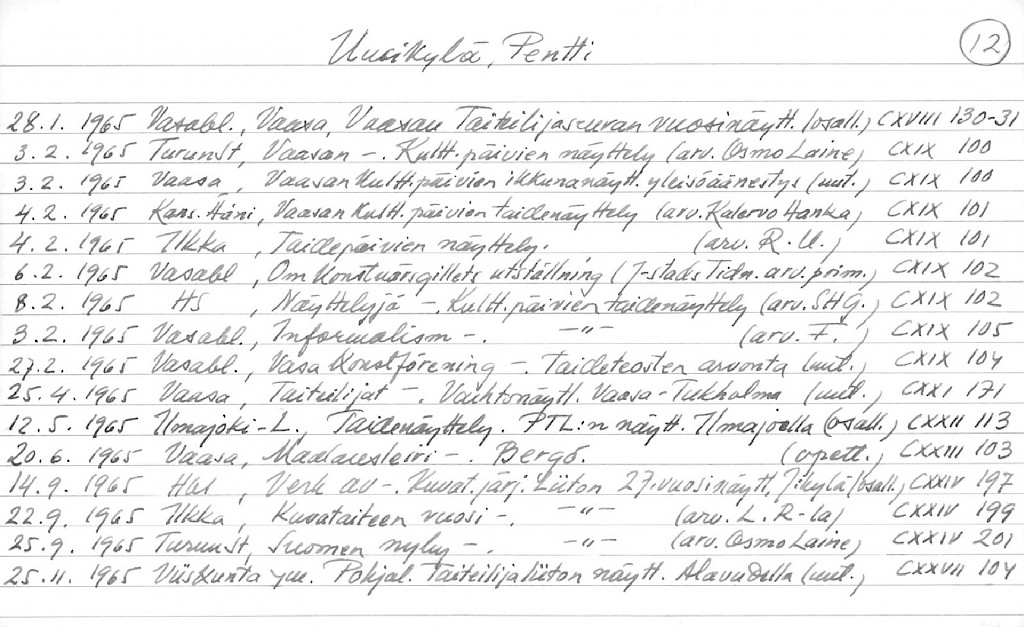 Uusikylä, Pentti 12
28.1. 1965 Vasabl., Vaasa, Vaasan Taiteilijaseuran vuosinäytt. (osall.) CXVIII 130-31
3.2. 1965 TurunSt, Vaasan -. Kultt.päivien näyttely (arv. Osmo Laine) CXIX 100
3.2. 1965 Vaasa, Vaasan kultt.päivien ikkunanäytt. yleisöäänestys (uut.) CXIX 100
4.2. 1965 Kans. Ääni, Vaasan kultt.päivien taidenäyttely (arv. Kalervo Hanka) CXIX 101
4.2. 1965 Ilkka, Taidepäivien näyttely. (arv. R.U.) CXIX 101
6.2. 1965 Vasabl, Om Konstnärsgillets utställning (J-stads Tidn. arv. prim.) CXIX 102
8.2. 1965 HS, Näyttelyjä -. Kultt.päivien taidenäyttely (arv. SHG.) CXIX 102
3.2. 1965 Vasabl., Informalism -. -"- (arv. F.) CXIX 105
27.2. 1965 Vasabl., Vasa Konstförening -. Taideteosten arvonta (uut.) CXIX 104
25.4. 1965 Vaasa, Taiteilijat -. Vaihtonäytt. Vaasa-Tukholma (uut.) CXXI 171
12.5. 1965 Ilmajoki-L., Taidenäyttely. PTL:n näytt. Ilmajoella (osall.) CXXII 113
20.6. 1965 Vaasa, Maalausleiri -. Bergö. (opett.) CXXIII 103
14.9. 1965 Hbl, Verk av -. Kuvat.järj. Liiton 27. vuosinäytt, J:kylä (osall.) CXXIV 197
22.9. 1965 Ilkka, Kuvataiteen vuosi -. -"- (arv. L. R-la) CXXIV 199
25.9. 1965 TurunSt, Suomen nyky -. -"- (arv. Osmo Laine) CXXIV 201
25.11. 1965 Viiskunta ym. Pohjal. Taiteilijaliiton näytt. Alavudella (uut.) CXXVII 104